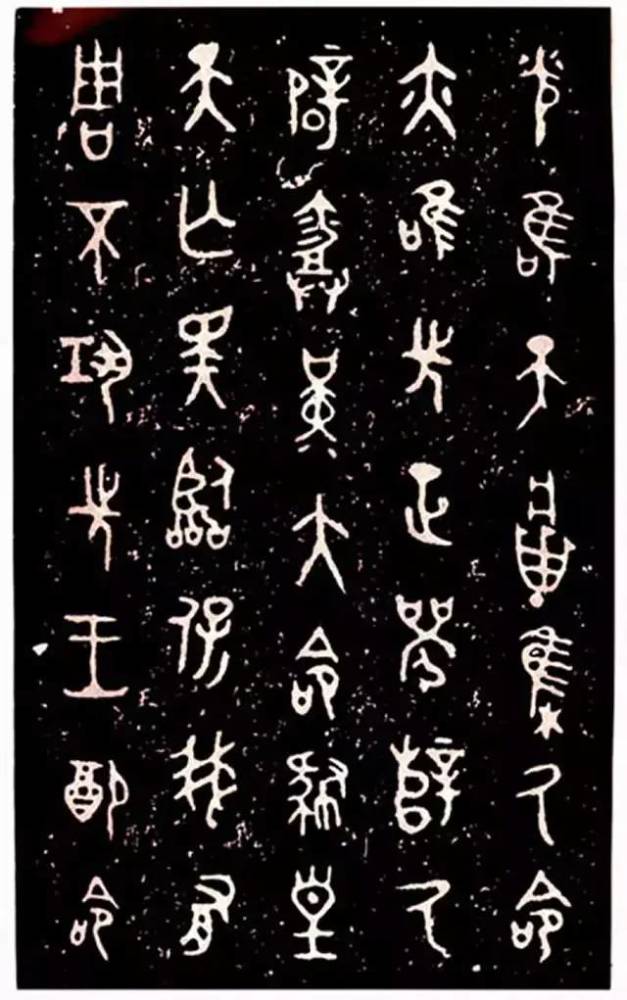 光唯天將集氒命
亦唯先正襄辥氒
辟堇大命肆皇
天亡斁臨保我有
周不巩先王配命